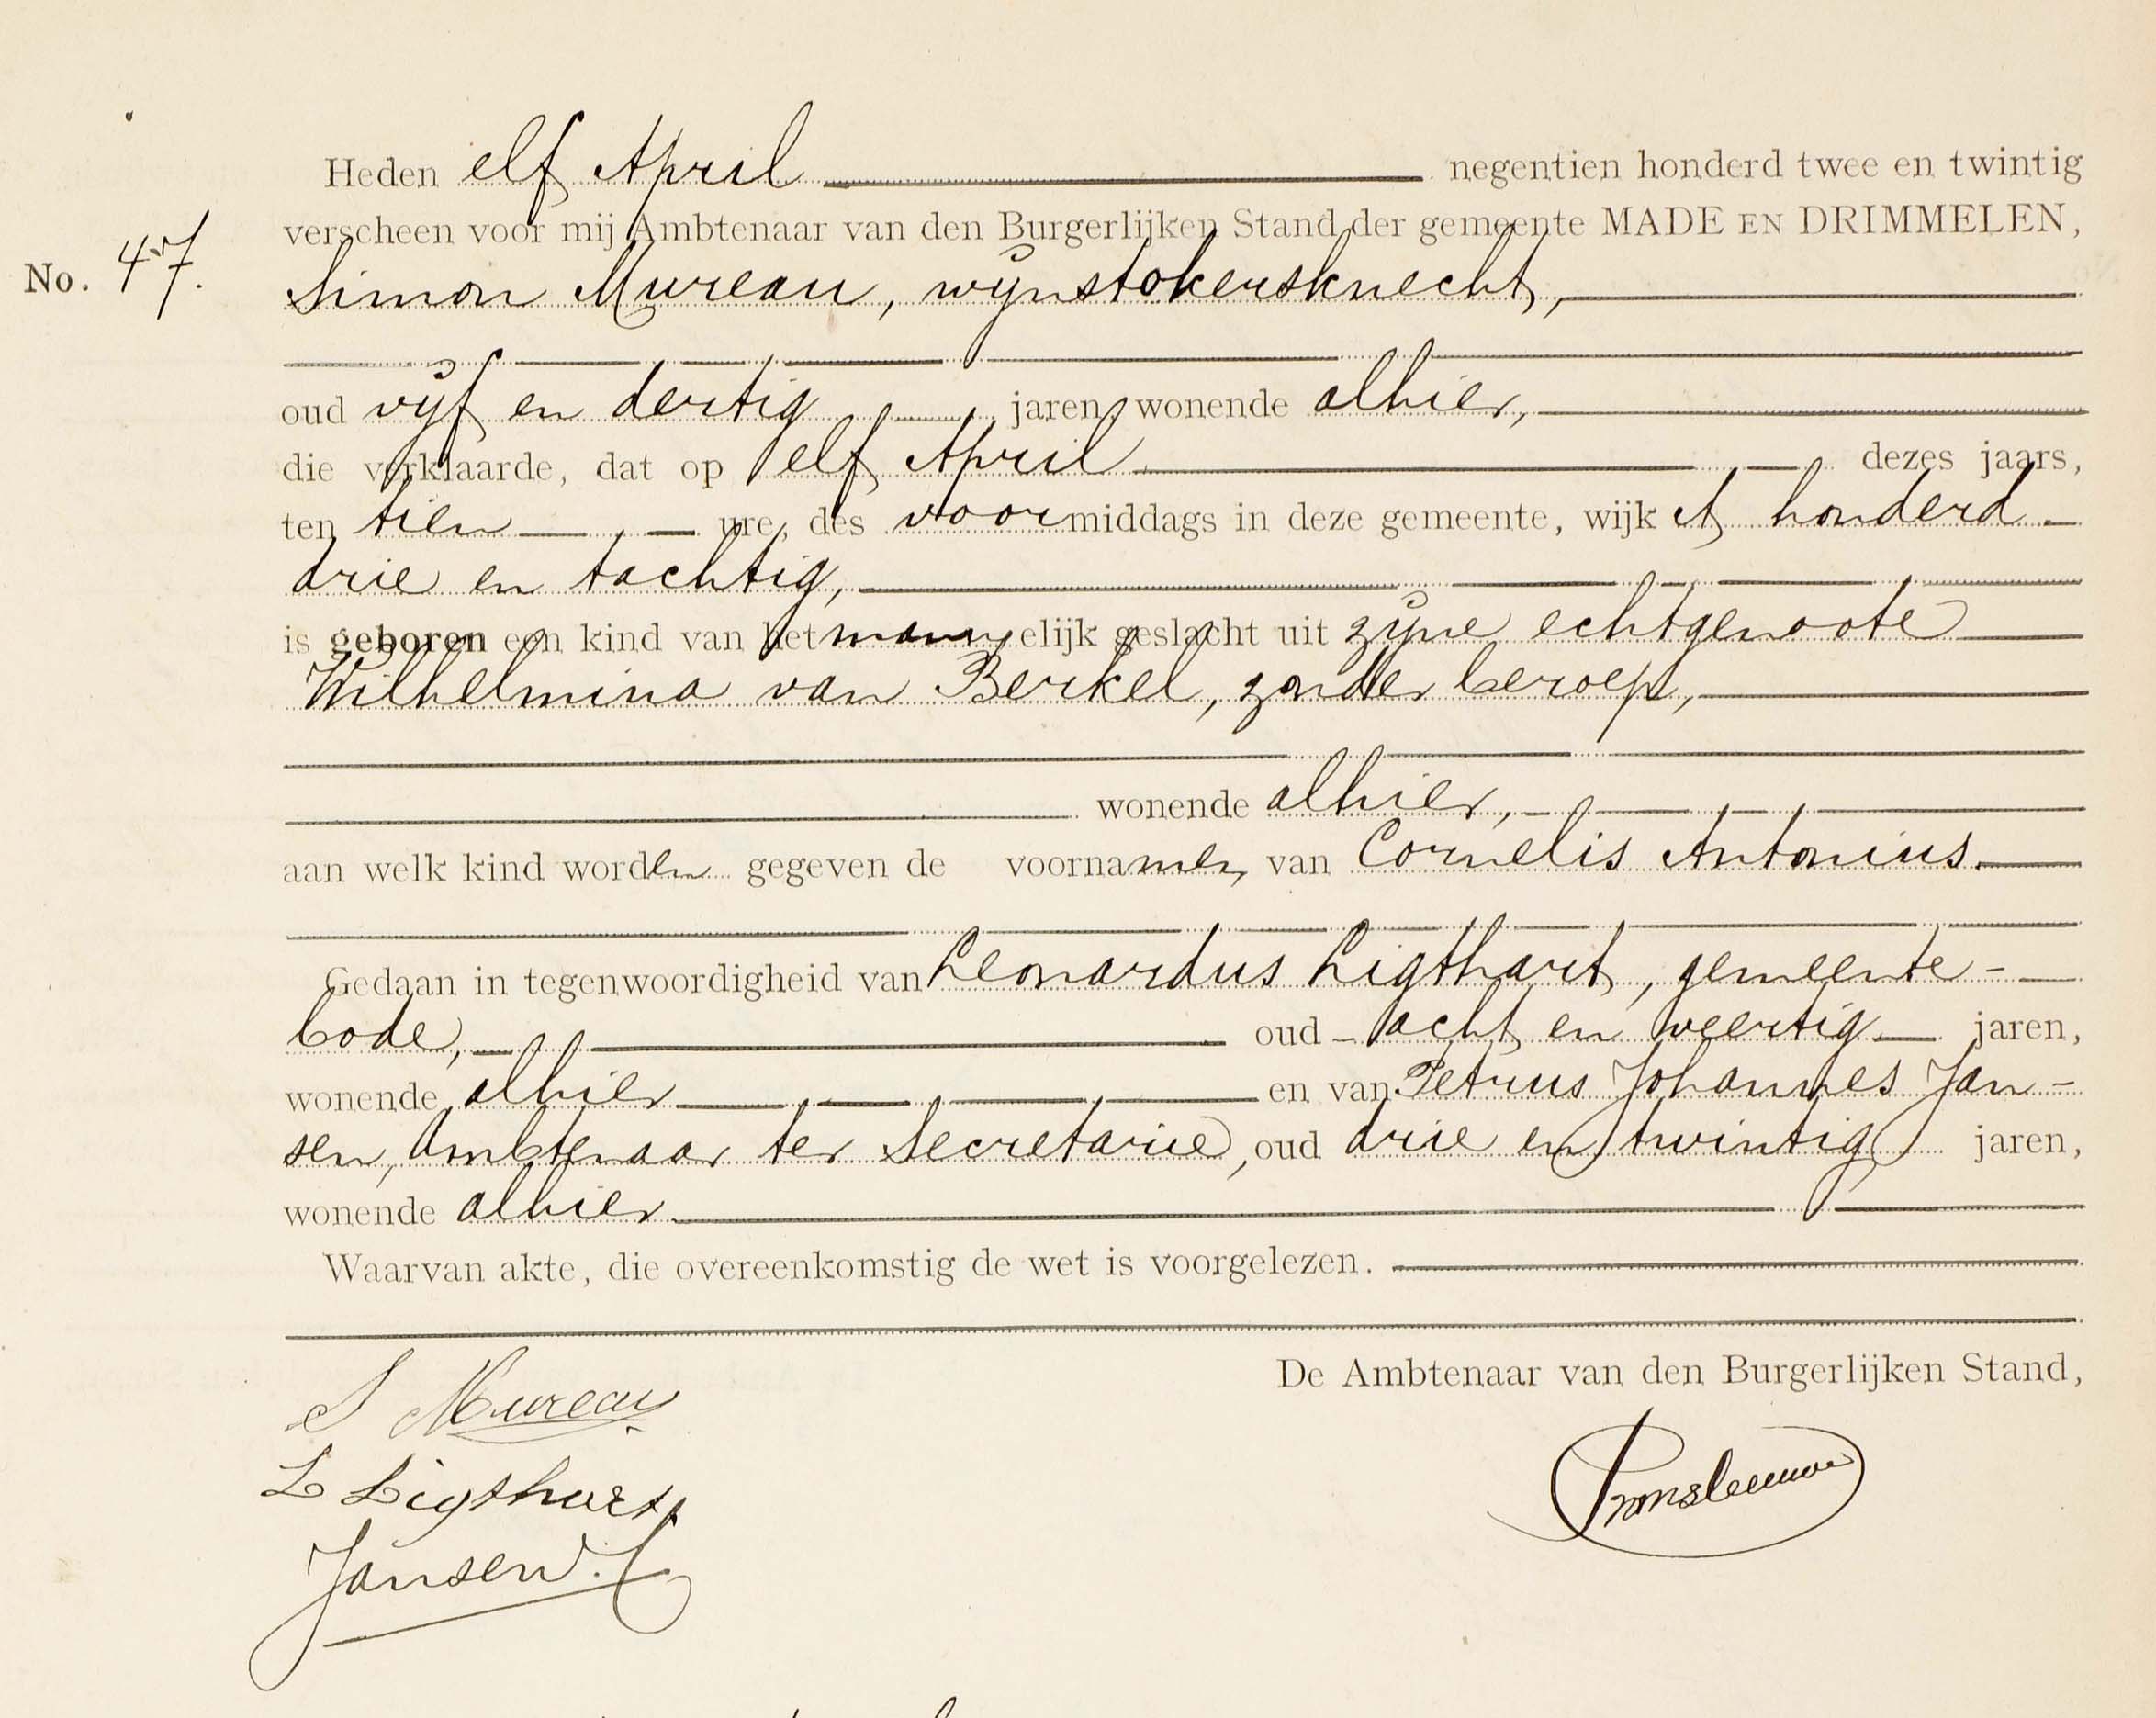 Heden elf April negentien honderd twee en twintig
verscheen voor mij Ambtenaar van den Burgerlijken Stand der gemeente MADE EN DRIMMELEN,
No. 47.
Simon Mureau, wijnstokersknecht,
oud vijf en dertig jaren, wonende alhier,
die verklaarde, dat op elf April dezes jaars,
ten tien ure, des voormiddags in deze gemeente, wijk A honderd
drie en tachtig,
is geboren een kind van het mannelijk geslacht uit zijne echtgenoote
Wilhelmina van Berkel, zonder beroep,
wonende alhier,
aan welk kind worden gegeven de voornamen van Cornelis Antonius.
Gedaan in tegenwoordigheid van Leonardus Ligthart, gemeente-
bode, oud acht en veertig jaren,
wonende alhier en van Petrus Johannes Jan-
sen, Ambtenaar ter Secretarie, oud drie en twintig jaren,
wonende alhier
Waarvan akte, die overeenkomstig de wet is voorgelezen.
De Ambtenaar van den Burgerlijken Stand,
S Mureau
L Ligthart
Jansen.